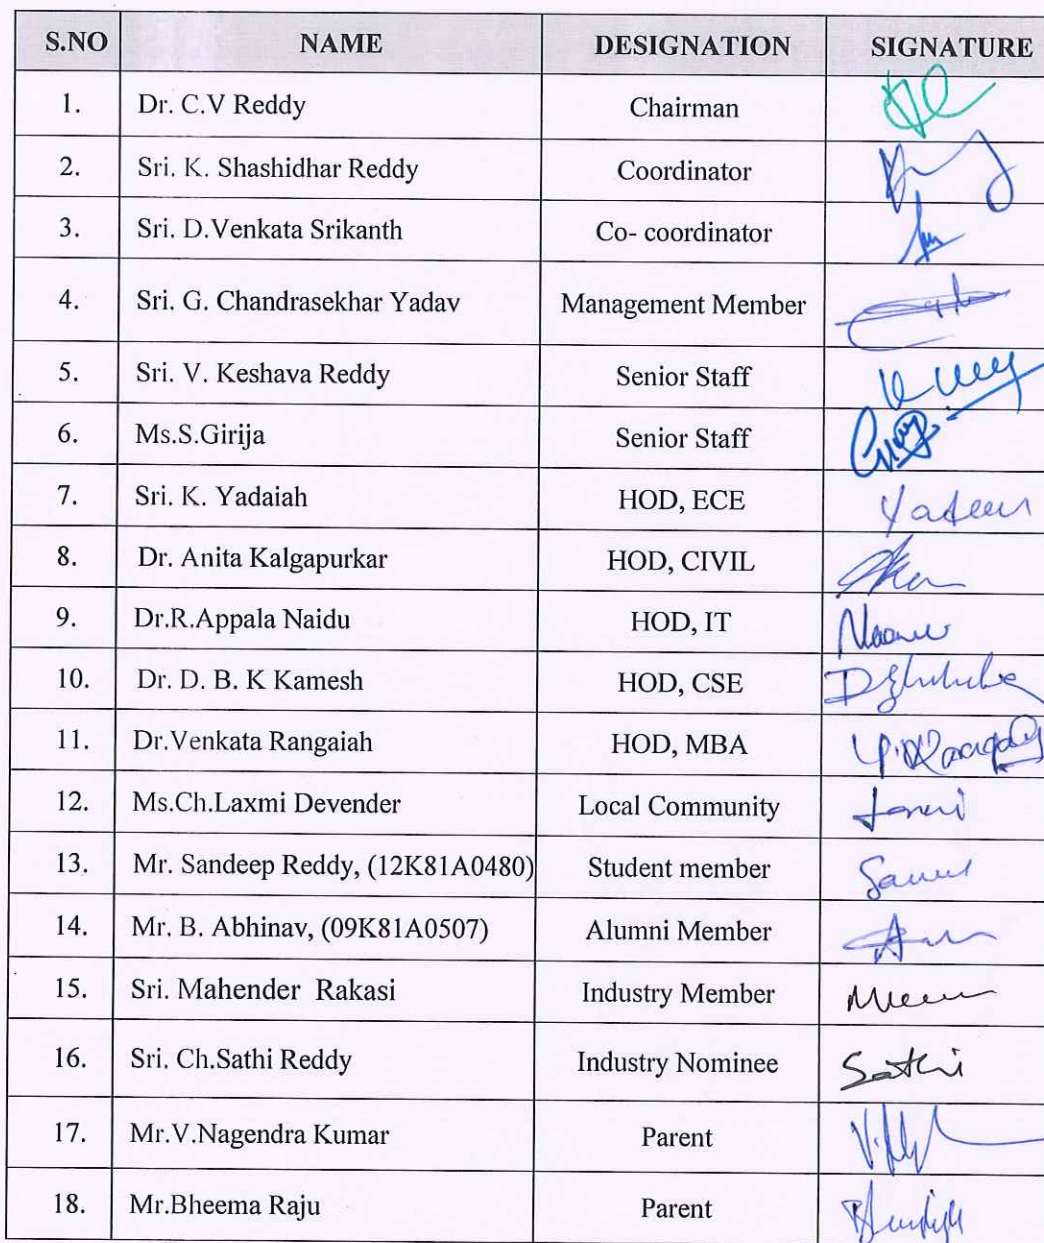 S.NO NAME DESIGNATION SIGNATURE
1. Dr. C.V Reddy Chairman
2. Sri. K. Shashidhar Reddy Coordinator
3. Sri. D.Venkata Srikanth Co- coordinator
4. Sri. G. Chandrasekhar Yadav Management Member
5. Sri. V. Keshava Reddy Senior Staff
6. Ms.S.Girija Senior Staff
7. Sri. K. Yadaiah HOD, ECE
8. Dr. Anita Kalgapurkar HOD, CIVIL
9. Dr.R.Appala Naidu HOD, IT
10. Dr. D. B. K Kamesh HOD, CSE
11. Dr.Venkata Rangaiah HOD, MBA
12. Ms.Ch.Laxmi Devender Local Community
13. Mr. Sandeep Reddy, (12K81A0480) Student member
14. Mr. B. Abhinav, (09K81A0507) Alumni Member
15. Sri. Mahender Rakasi Industry Member
16. Sri. Ch.Sathi Reddy Industry Nominee Sathi
17. Mr.V.Nagendra Kumar Parent
18. Mr.Bheema Raju Parent